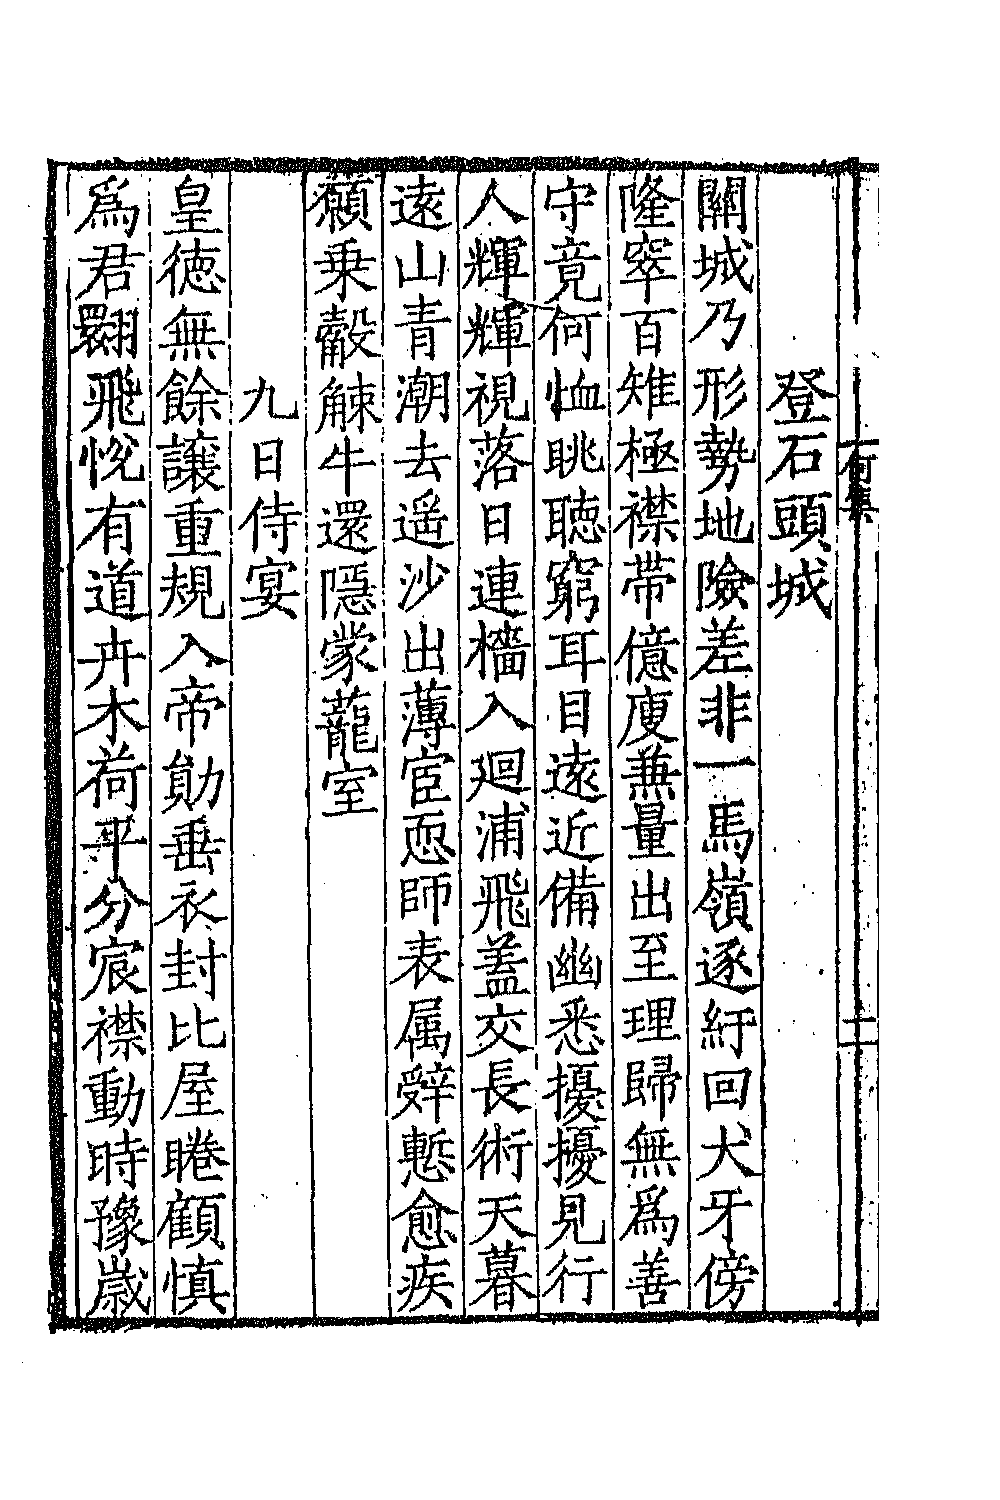 何集
二
登石頭城
關城乃形勢地險差非一馬嶺逐紆回犬牙傍
隆窣百雉極襟帶億庾兼量出至理歸無爲善
守竟何恤眺聽窮耳目遠近備幽悉擾擾見行
人輝輝視落日連檣入廻浦飛蓋交長術天暮
遠山青潮去遥沙出薄宦恧師表属辤慙愈疾
願乗觳觫牛還隱蒙蘢室
九日侍宴
皇徳無餘讓重規入帝勛垂衣封比屋睠顧慎
爲君翾飛悅有道卉木荷平分宸襟動時豫歲